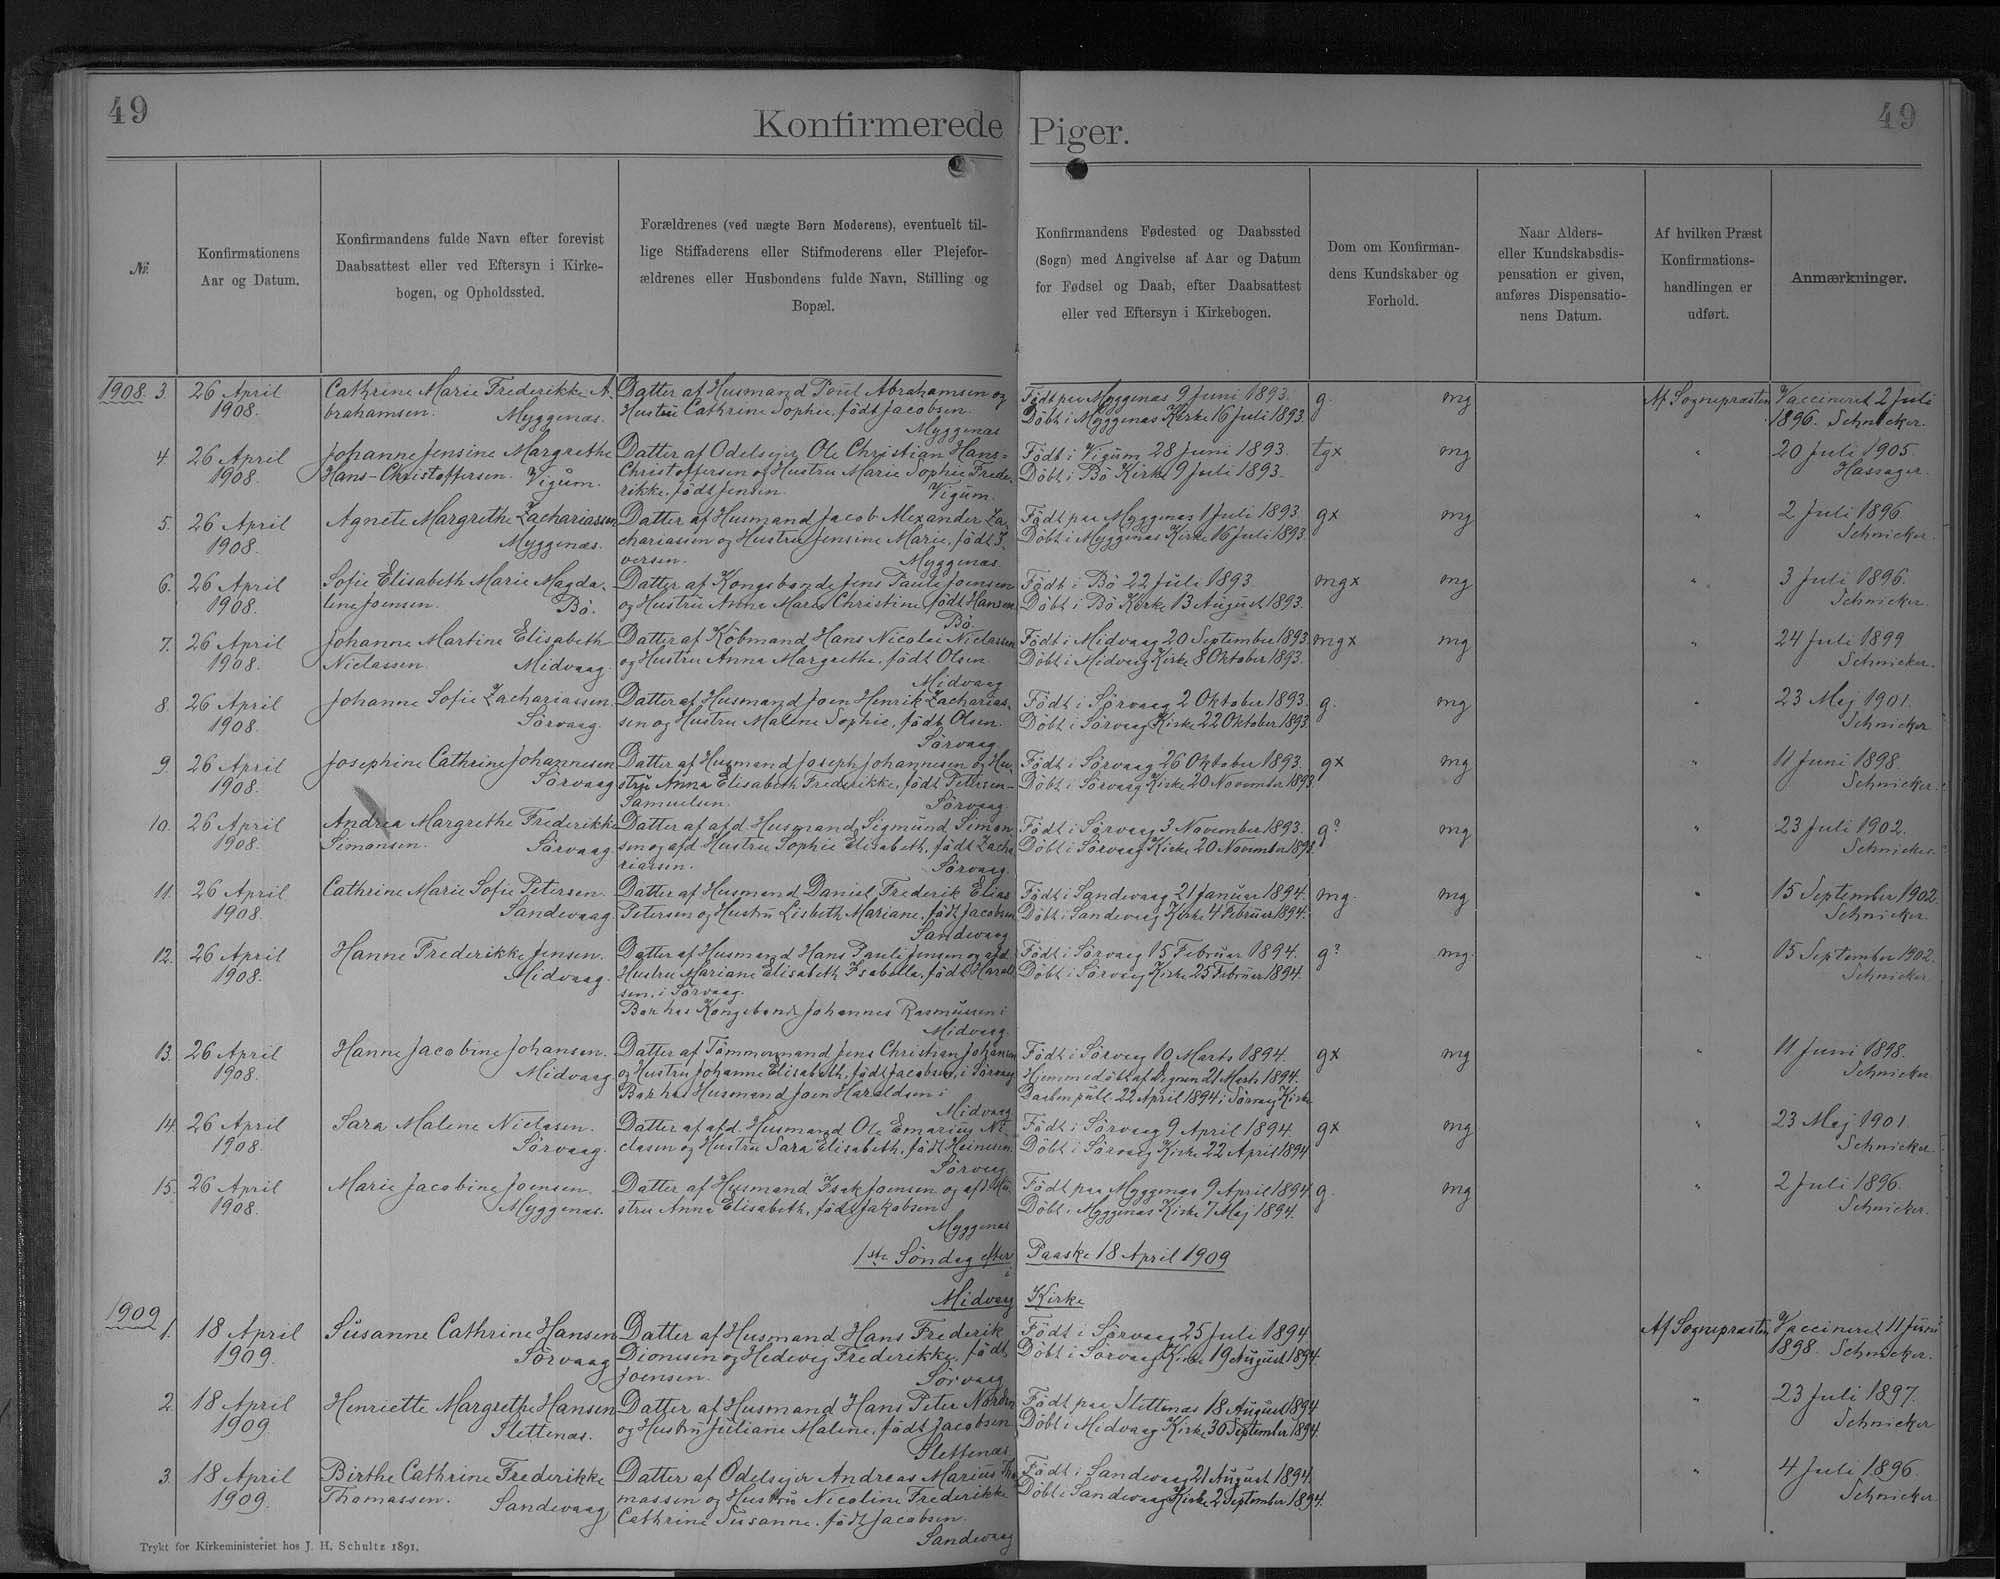 49
49
Konfirmerede Piger.
Nr.
Konfirmationens
Aar og Datum.
Konfirmandens fulde Navn efter forevist
Daabsattest eller ved Eftersyn i Kirke-
bogen, og Opholdssted.
Forældrenes (ved uægte Børn Moderens), eventuelt til-
lige Stiffaderens eller Stifmoderens eller Plejefor-
ældrenes eller Husbondens fulde Navn, Stilling og
Bopæl.
Konfirmandens Fødested og Daabssted
(Sogn) med Angivelse af Aar og Datum
for Fødsel og Daab, efter Daabsattest
eller ved Eftersyn i Kirkebogen.
Dom om Konfirman-
dens Kundskaber og
Forhold.
Naar Alders-
eller Kundskabsdis-
pensation er given,
anføres Dispensatio-
nens Datum.
Af hvilken Præst
Konfirmations-
handlingen er
udført.
Anmærkninger.
1908. 3. 26 April
1908.
Cathrine Marie Frederikke A-
brahamsen. Myggenæs.
Datter af Husmand Poul Abrahamsen og
Hustru Cathrine Sophie, født Jacobsen.
Myggenæs
Født paa Myggenæs 9 Juni 1893.
Døbt i Myggenæs Kirke 16 Juli 1893.
g. mg
Af Sognepræsten
Vaccineret 2 Juli
1896. Schnicker.
4. 26 April
1908.
Johanne Jensine Margrethe
Hans-Christoffersen. Vigum.
Datter af Odelsejer Ole Christian Hans-
Christoffersen og Hustru Marie Sophie Frede-
rikke, født Jensen. Vigum.
Født i Vigum 28 Juni 1893.
Døbt i Bø Kirke 9 Juli 1893.
tgx mg
"
20 Juli 1905.
Hassager.
5. 26 April
1908.
Agnete Margrethe Zachariassen
Myggenæs.
Datter af Husmand Jacob Alexander Za-
chariassen og Hustru Jensine Marie, født I-
versen. Myggenæs
Født paa Myggenæs 1 Juli 1893.
Døbt i Myggenæs Kirke 16 Juli 1893.
gx mg
"
2 Juli 1896.
Schnicker.
6. 26 April
1908.
Sofie Elisabeth Marie Magda-
lene Joensen. Bø.
Datter af Kongsbonde Jens Pauli Joensen
og Hustru Anna Marie Christine, født Hansen
Bø.
Født i Bø 22 Juli 1893.
Døbt i Bø Kirke 13 August 1893.
mgx mg
"
3 Juli 1896.
Schnicker.
7. 26 April
1908.
Johanne Martine Elisabeth
Niclassen. Midvaag.
Datter af Købmand Hans Nicolai Niclassen
og Hustru Anna Margrethe, født Olsen
Midvaag
Født i Midvaag 20 September 1893.
Døbt i Midvaag Kirke 8 Oktober 1893.
mgx mg
"
24 Juli 1899
Schnicker.
8. 26 April
1908.
Johanne Sofie Zachariassen.
Sörvaag.
Datter af Husmand Joen Henrik Zacharias-
sen og Hustru Malene Sophie, født Olsen.
Sörvaag
Født i Sörvaag 2 Oktober 1893.
Døbt i Sörvaag Kirke 22 Oktober 1893
g. mg
"
23 Maj 1901.
Schnicker
9. 26 April
1908.
Josephine Cathrine Johannesen
Sörvaag
Datter af Husmand Joseph Johannesen og Hu-
stru Anna Elisabeth Frederikke, født Petersen-
Samuelsen. Sörvaag.
Født i Sörvaag 26 Oktober 1893.
Døbt i Sörvaag Kirke 20 November 1893
gx mg
"
11 Juni 1898.
Schnicker.
10. 26 April
1908.
Andrea Margrethe Frederikke
Simonsen. Sörvaag
Datter af afd. Husmand Sigmund Simon-
sen og afd. Hustru Sophie Elisabeth, født Zacha-
riassen. Sörvaag.
Født i Sörvaag 3 November 1893.
Døbt i Sörvaag Kirke 20 November 1893.
g? mg
"
23 Juli 1902.
Schnicker.
11. 26 April
1908.
Cathrine Marie Sofie Petersen.
Sandevaag
Datter af Husmand Daniel Frederik Elias
Petersen og Hustru Lisbeth Mariane, født Jacobsen
Sandevaag
Født i Sandevaag 21 Januar 1894.
Døbt i Sandevaag Kirke 4 Februar 1894.
mg. mg
"
15 September 1902.
Schnicker.
12. 26 April
1908.
Hanne Frederikke Jensen.
Midvaag.
Datter af Husmand Hans Pauli Jensen og afd.
Hustru Mariane Elisabeth Isabella, født Harald-
sen, i Sörvaag.
Bor hos Kongsbonde Johannes Rasmussen i
Midvaag.
Født i Sörvaag 15 Februar 1894.
Døbt i Sörvaag Kirke 25 Februar 1894.
g? mg.
"
15 September 1902.
Schnicker
13. 26 April
1908.
Hanne Jacobine Johansen.
Midvaag
Datter af Tømmermand Jens Christian Johansen
og Hustru Johanne Elisabeth, født Jacobsen, i Sörvaag
Bor hos Husmand Joen Haraldsen i
Midvaag
Født i Sörvaag 10 Marts 1894.
Hjemmedøbt af Degnen 21 Marts 1894.
Daaben publ. 22 April 1894 i Sörvaag Kirke
gx mg
"
11 Juni 1898.
Schnicker.
14. 26 April
1908.
Sara Malene Niclasen.
Sörvaag.
Datter af afd. Husmand Ole Emarius Ni-
clasen og Hustru Sara Elisabeth, født Heinesen.
Sörvaag
Født i Sörvaag 9 April 1894.
Døbt i Sörvaag Kirke 22 April 1894
gx mg
"
23 Maj 1901.
Schnicker
15. 26 April
1908.
Marie Jacobine Joensen.
Myggenæs.
Datter af Husmand Isak Joensen og afd. Hu-
stru Anne Elisabeth, født Jakobsen
Myggenæs
Født paa Myggenæs 9 April 1894
Døbt i Myggenæs Kirke 7 Maj 1894.
g. mg
"
2 Juli 1896.
Schnicker.
1ste Søndag efter Paaske 18 April 1909
i
Midvaag Kirke
1909
1. 18 April
1909.
Susanne Cathrine Hansen
Sörvaag
Datter af Husmand Hans Frederik
Dionesen og Hedevig Frederikke, født
Joensen. Sörvaag
Født i Sörvaag 25 Juli 1894
Døbt i Sörvaag Kirke 19 August 1894.
Af Sognepræsten
Vaccineret 11 Juni
1898. Schnicker.
2. 18 April
1909.
Henriette Margrethe Hansen
Slettenæs.
Datter af Husmand Hans Peter Norden
og Hustru Juliane Malene, født Jacobsen
Slettenæs
Født paa Slettenæs 18 August 1894
Døbt i Midvaag Kirke 30 September 1894.
"
23 Juli 1897.
Schnicker
3. 18 April
1909.
Birthe Cathrine Frederikke
Thomassen. Sandevaag
Datter af Odelsejer Andreas Marius Tho-
massen og Hustru Nicoline Frederikke
Cathrine Susanne, født Jacobsen.
Sandevaag
Født i Sandevaag 21 August 1894.
Døbt i Sandevaag Kirke 2 September 1894.
"
4 Juli 1896.
Schnicker
Trykt for Kirkeministeriet hos J. H. Schultz 1891.